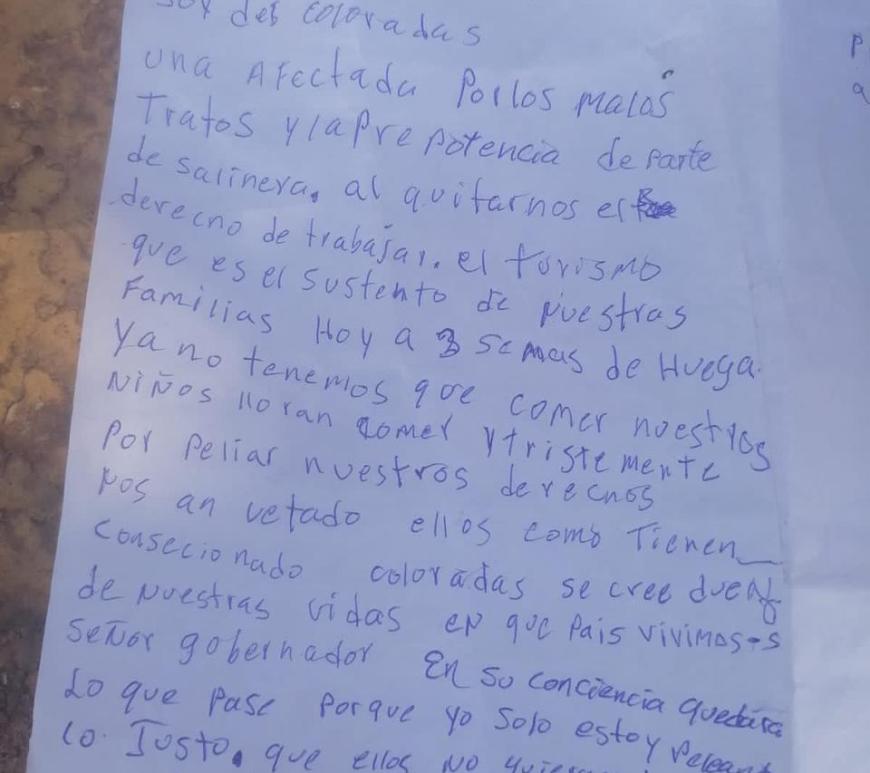 soy des coloradas
una Afectada Porlos malos
Tratos y la Prepotencia de parte
de salinera. al quitarnos el
derecho de trabajar. el turismo
que es el sustento de Nuestras
Familias Hoy a 3 semas de Huega.
Ya no tenemos que comer nuestros
Niños lloran comer y tristemente
Por peliar nuestros derechos
Nos an vetado ellos como Tienen
consecionado coloradas se cree dueñ
de Nuestras vidas en que Pais vivimos-s
señor gobernador En su conciencia quedara
Lo que pase porque yo solo estoy peleant
lo Justo. que ellos no
P
a